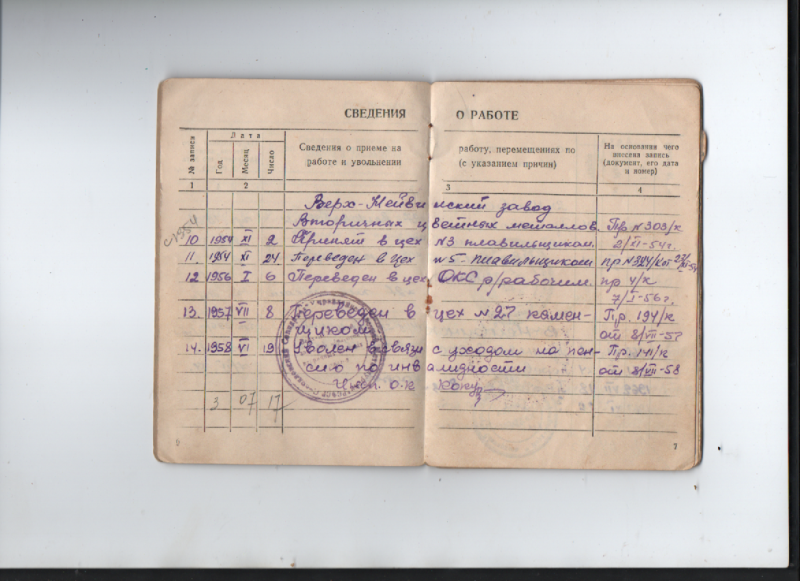 СВЕДЕНИЯ О РАБОТЕ
№ записи
Дата
Год
Месяц
Число
Сведения о приеме на работу, перемещениях по
работе и увольнении (с указанием причин)
На основании чего
внесена запись
(документ, его дата
и номер)
1 2 3 4
Верх-Нейвинский завод
Вторичных цветных металлов. Пр. N303/к
с 1954
10 1954 XI 2 Принят в цех N3 плавильщиком. 2/XI-54г.
11. 1954 XI 24 Переведен в цех N5-плавильщиком пр N324/к от 27/XI-54
12 1956 I 6 Переведен в цех ОКС р/рабочим. пр 4/к
7/I-56г.
13. 1957 VII 8 Переведен в цех N27 камен- Пр. 194/к
щиком от 8/VII-57
14. 1958 VI 19 Уволен в связи с уходом на пен- Пр. 141/к
сию по инвалидности от 8/VII-58
Инсп. о.к
3 07 17
7